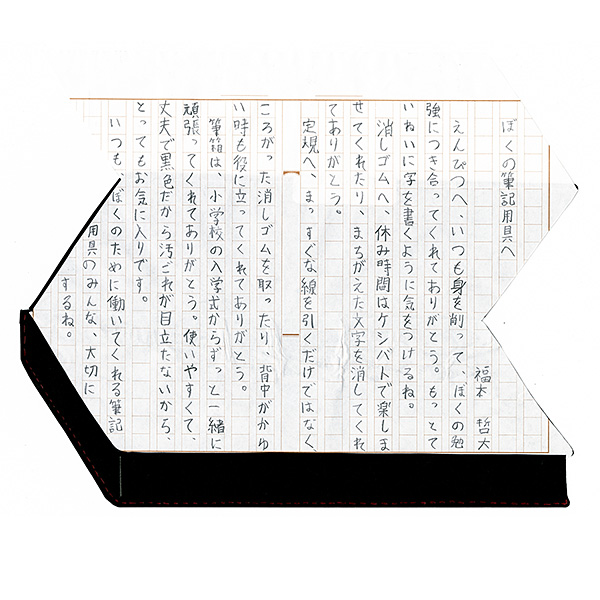 ぼくの筆記用具へ
福本 哲大
えんぴつへ、いつも身を削って、ぼくの勉
強につき合ってくれてありがとう。もっとて
いねいに字を書くように気をつけるね。
消しゴムへ、休み時間はケシバトで楽しま
せてくれたり、まちがえた文字を消してくれ
てありがとう。
定規へ、まっすぐな線を引くだけではなく、
ころがった消しゴムを取ったり、背中がかゆ
い時も役に立ってくれてありがとう。
筆箱は、小学校の入学式からずっと一緒に
頑張ってくれてありがとう。使いやすくて、
丈夫で黒色だから汚ごれが目立たないから、
とってもお気に入りです。
いつも、ぼくのために働いてくれる筆記
用具のみんな、大切に
するね。